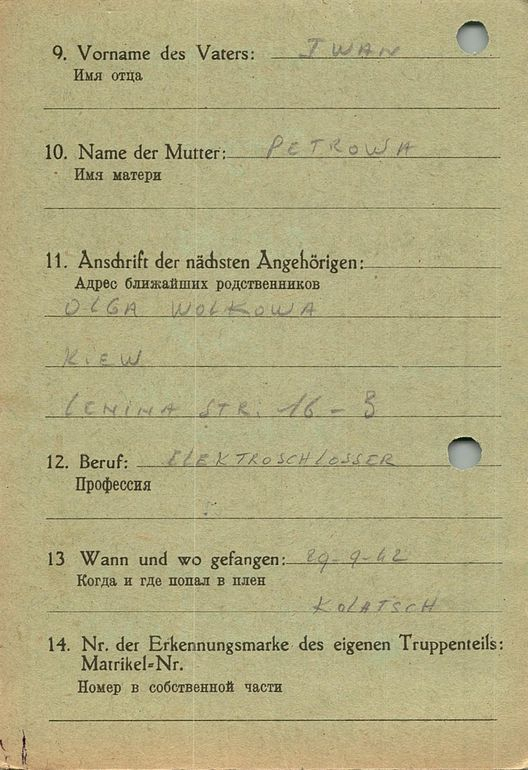 9. Vorname des Vaters: IWAN
Имя отца
10. Name der Mutter: PETROWA
Имя матери
11. Anschrift der nächsten Angehörigen:
Адрес ближайших родственников
OLGA WOLKOWA
KIEW
LENINA STR. 16 - 3
12. Beruf: ELEKTROSCHLOSSER
Профессия
13 Wann und wo gefangen: 29-9-42
Когда и где попал в плен
KOLATSCH
14. Nr. der Erkennungsmarke des eigenen Truppenteils:
Matrikel=Nr.
Номер в собственной части